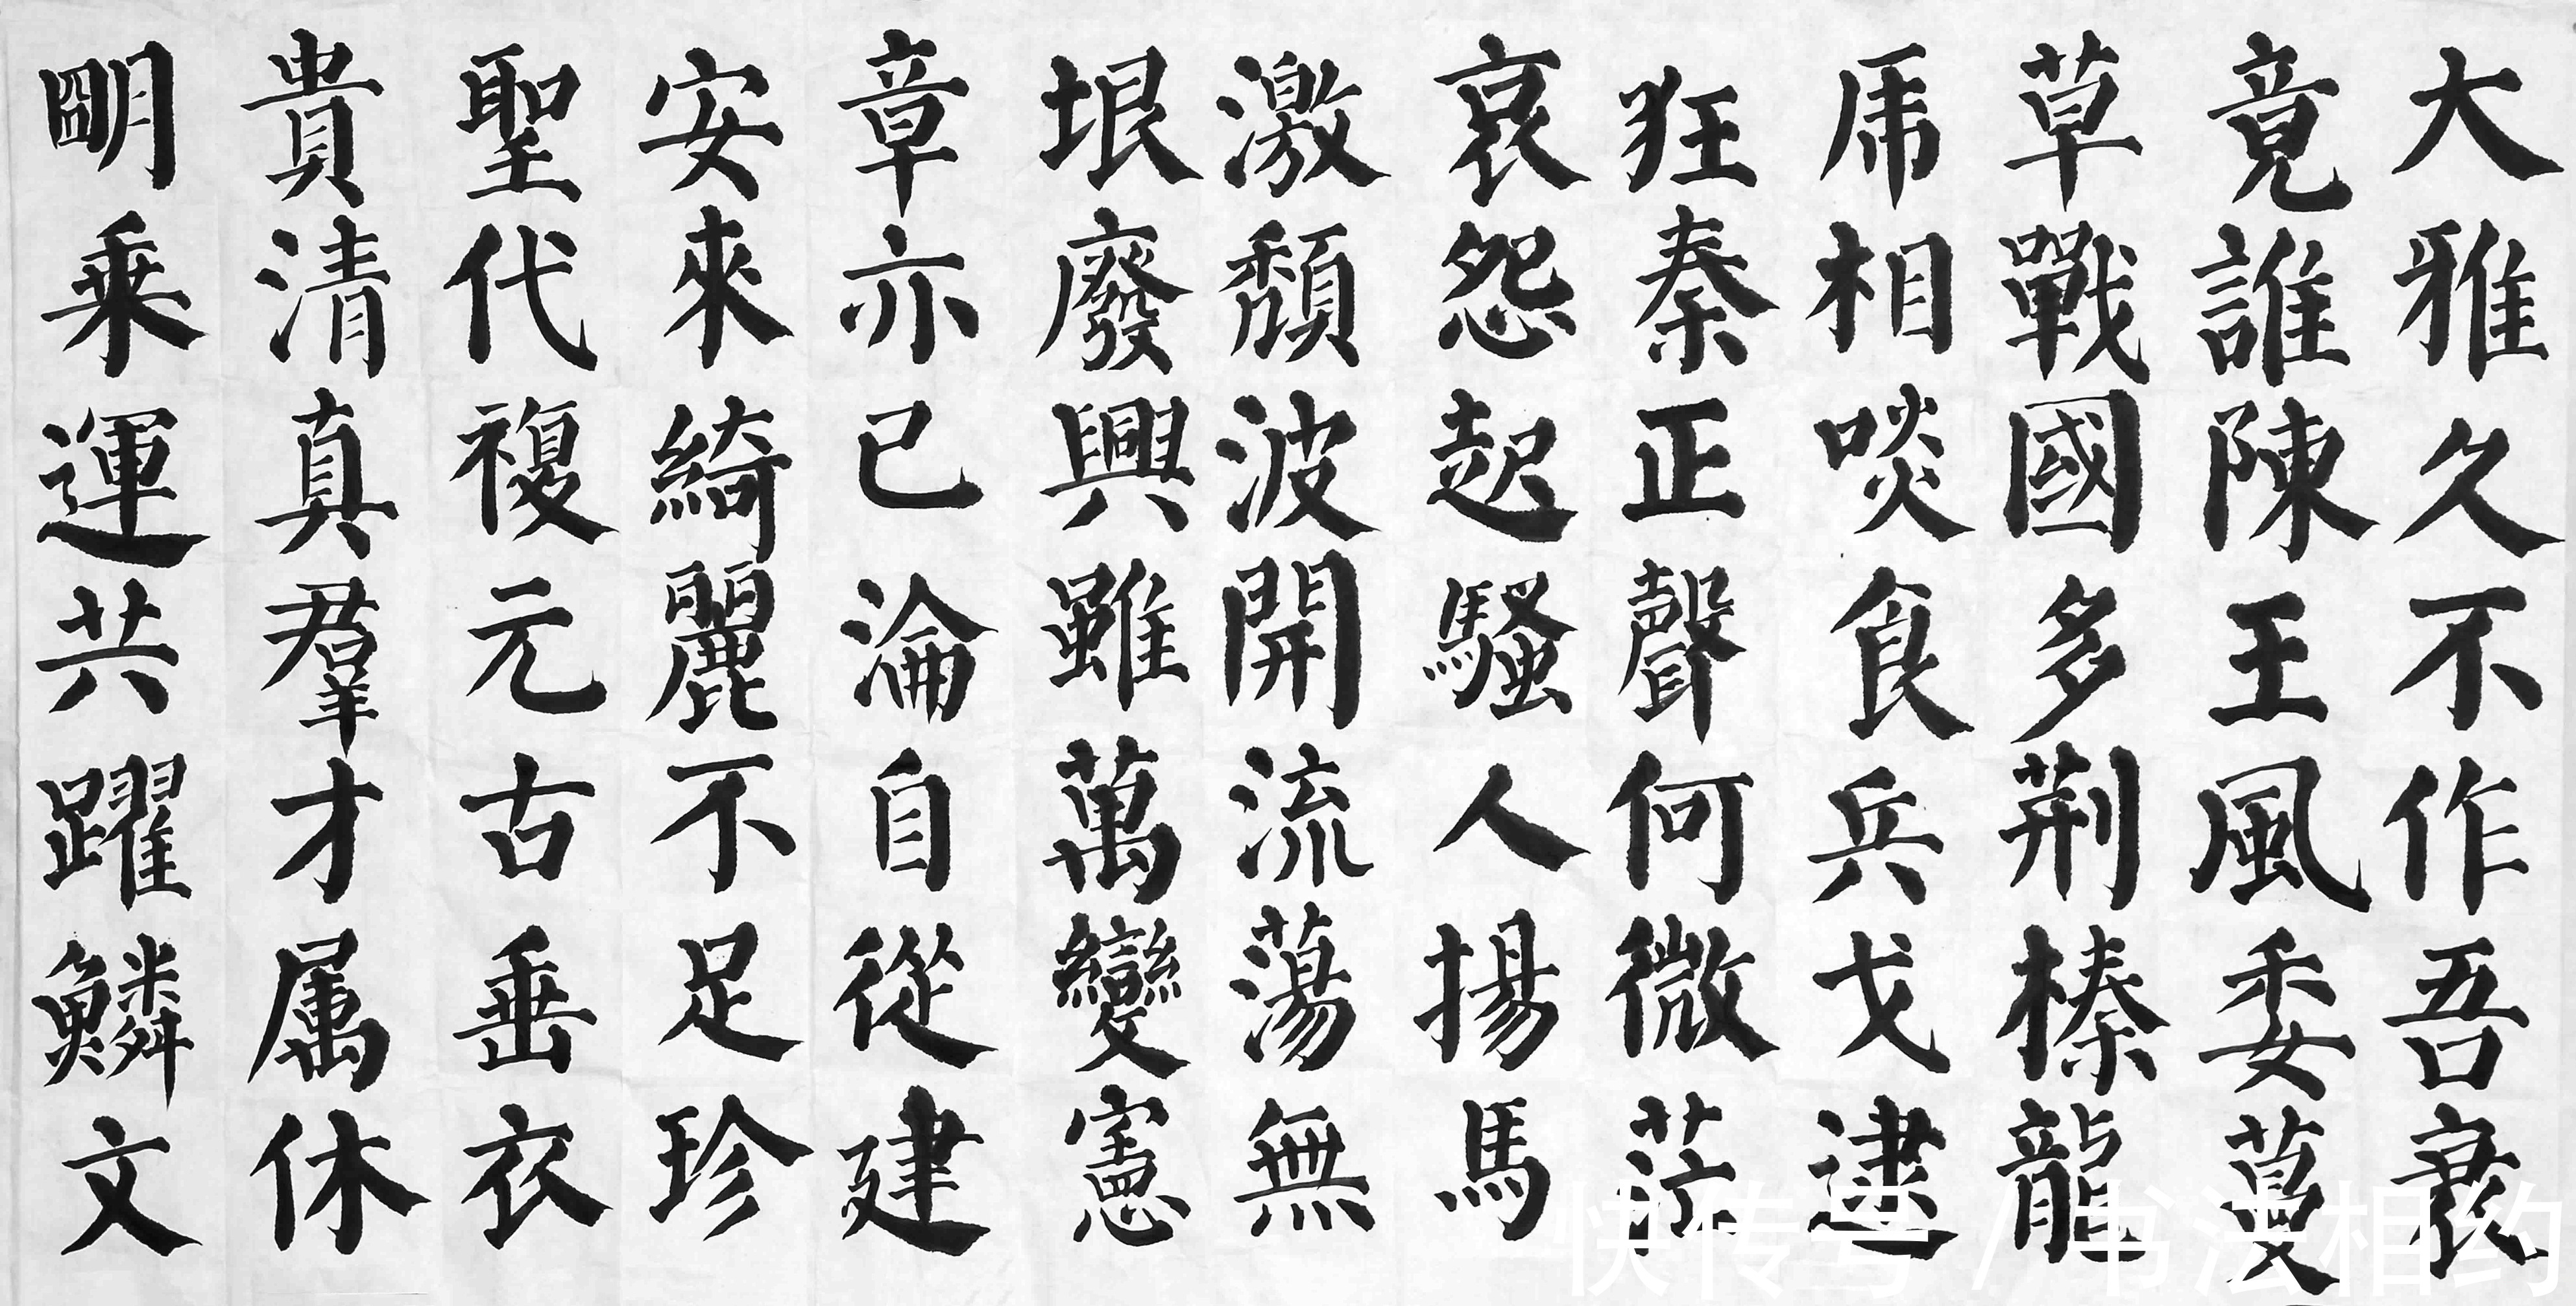 大雅久不作吾衰
竟誰陳王風委蔓
草戰國多荆榛龍
虎相啖食兵戈逮
狂秦正聲何微茫
哀怨起騷人揚馬
激頹波開流蕩無
垠廢興雖萬變憲
章亦已淪自從建
安來綺麗不足珍
聖代複元古垂衣
貴清真羣才属休
明乘運共躍鱗文
快传号 / 书法相约